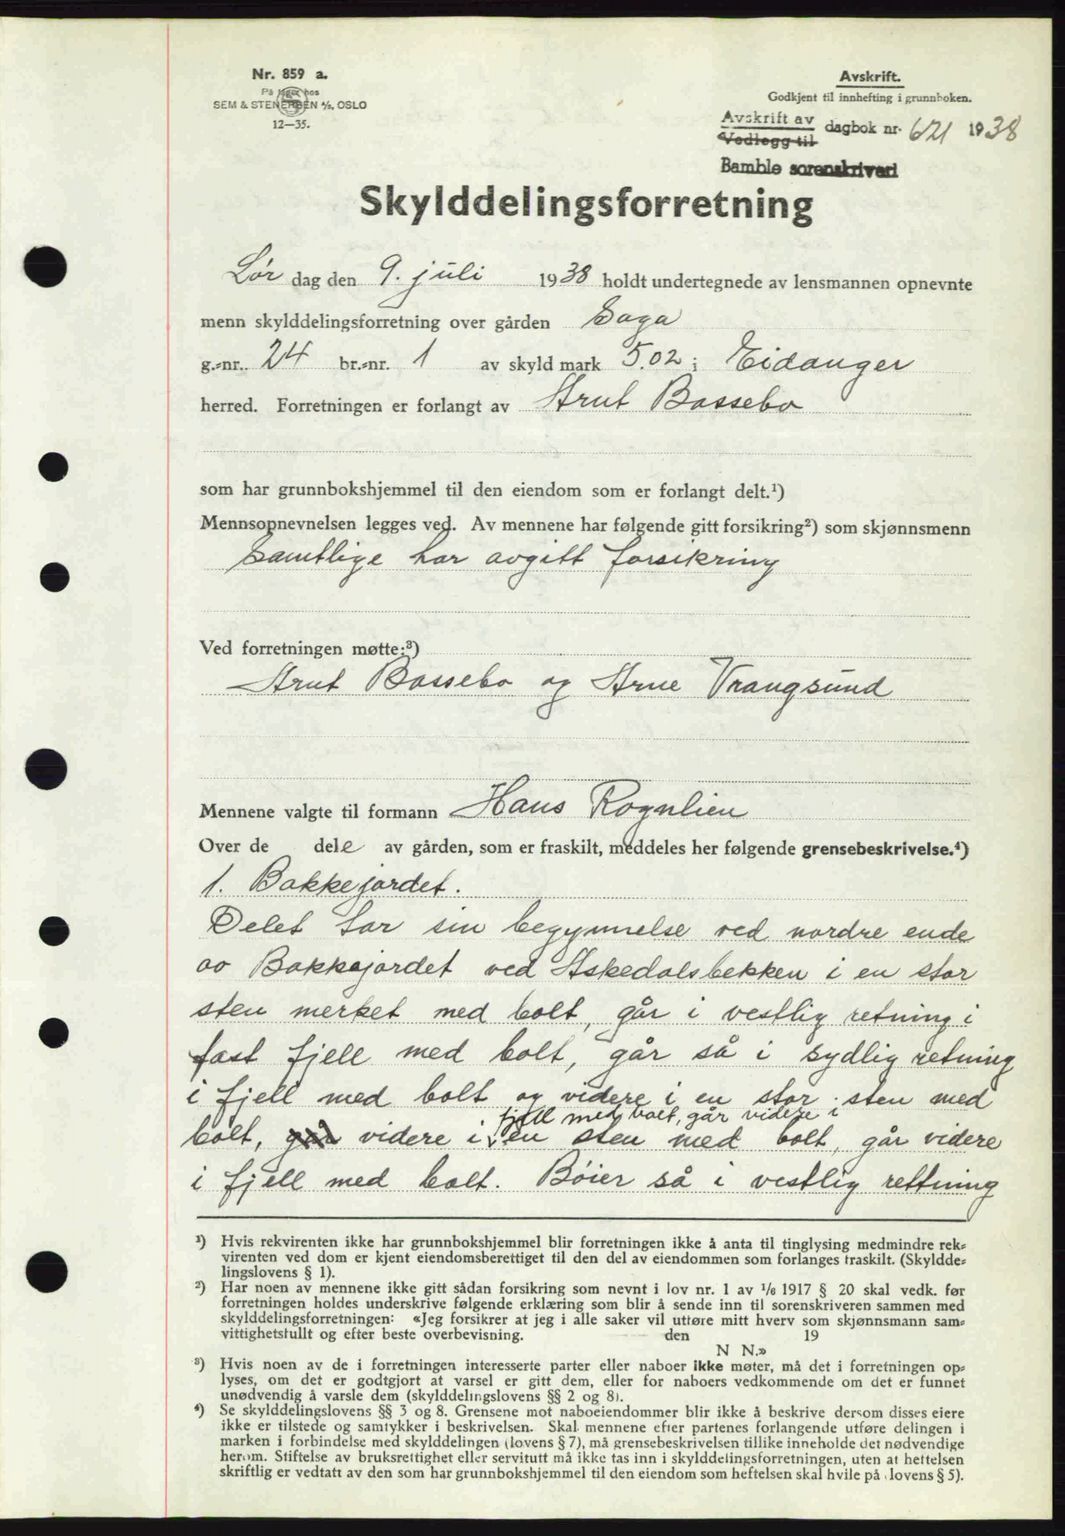 Nr. 859 a.
På lager hos
SEM & STENERSEN A/S, OSLO
12—35.
Avskrift.
Godkjent til innhefting i grunnboken.
Avskrift av
Vedlegg til
dagbok nr. 621 1938
Bamble sorenskriveri
Skylddelingsforretning
Lør dag den 9. juli 1938 holdt undertegnede av lensmannen opnevnte
menn skylddelingsforretning over gården Saga
g.-nr. 24 br.-nr. 1 av skyld mark 5.02 i Eidanger
herred. Forretningen er forlangt av Knut Bassebo
som har grunnbokshjemmel til den eiendom som er forlangt delt.¹)
Mennsopnevnelsen legges ved. Av mennene har følgende gitt forsikring²) som skjønnsmenn
Samtlige har avgitt forsikring
Ved forretningen møtte:³)
Knut Bassebo og Arne Vrangsund
Mennene valgte til formann Hans Rognlien
Over de dele av gården, som er fraskilt, meddeles her følgende grensebeskrivelse.⁴)
1. Bakkejordet.
Delet tar sin begynnelse ved nordre ende
av Bakkejordet ved Askedalsbekken i en stor
sten merket med bolt, går i vestlig retning i
fast fjell med bolt, går så i sydlig retning
i fjell med bolt og videre i en stor sten med
fjell med bolt, går videre i
bolt, går videre i en sten med bolt, går videre
i fjell med bolt. Bøier så i vestlig rettning
¹) Hvis rekvirenten ikke har grunnbokshjemmel blir forretningen ikke å anta til tinglysing medmindre rek-
virenten ved dom er kjent eiendomsberettiget til den del av eiendommen som forlanges fraskilt. (Skyldde-
lingslovens § 1).
²) Har noen av mennene ikke gitt sådan forsikring som nevnt i lov nr. 1 av 1/6 1917 § 20 skal vedk. før
forretningen holdes underskrive følgende erklæring som blir å sende inn til sorenskriveren sammen med
skylddelingsforretningen: «Jeg forsikrer at jeg i alle saker vil utføre mitt hverv som skjønnsmann sam-
vittighetsfullt og efter beste overbevisning. den 19
N N.»
³) Hvis noen av de i forretningen interesserte parter eller naboer ikke møter, må det i forretningen op-
lyses, om det er godtgjort at varsel er gitt dem, eller for naboers vedkommende om det er funnet
unødvendig å varsle dem (skylddelingslovens §§ 2 og 8).
⁴) Se skylddelingslovens §§ 3 og 8. Grensene mot naboeiendommer blir ikke å beskrive dersom disses eiere
ikke er tilstede og samtykker i beskrivelsen. Skal mennene efter partenes forlangende utføre delingen i
marken i forbindelse med skylddelingen (lovens § 7), må grensebeskrivelsen tillike inneholde det nødvendige
herom. Stiftelse av bruksrettighet eller servitutt må ikke tas inn i skylddelingsforretningen, uten at heftelsen
skriftlig er vedtatt av den som har grunnbokshjemmel til den eiendom som heftelsen skal hvile på (lovens § 5).